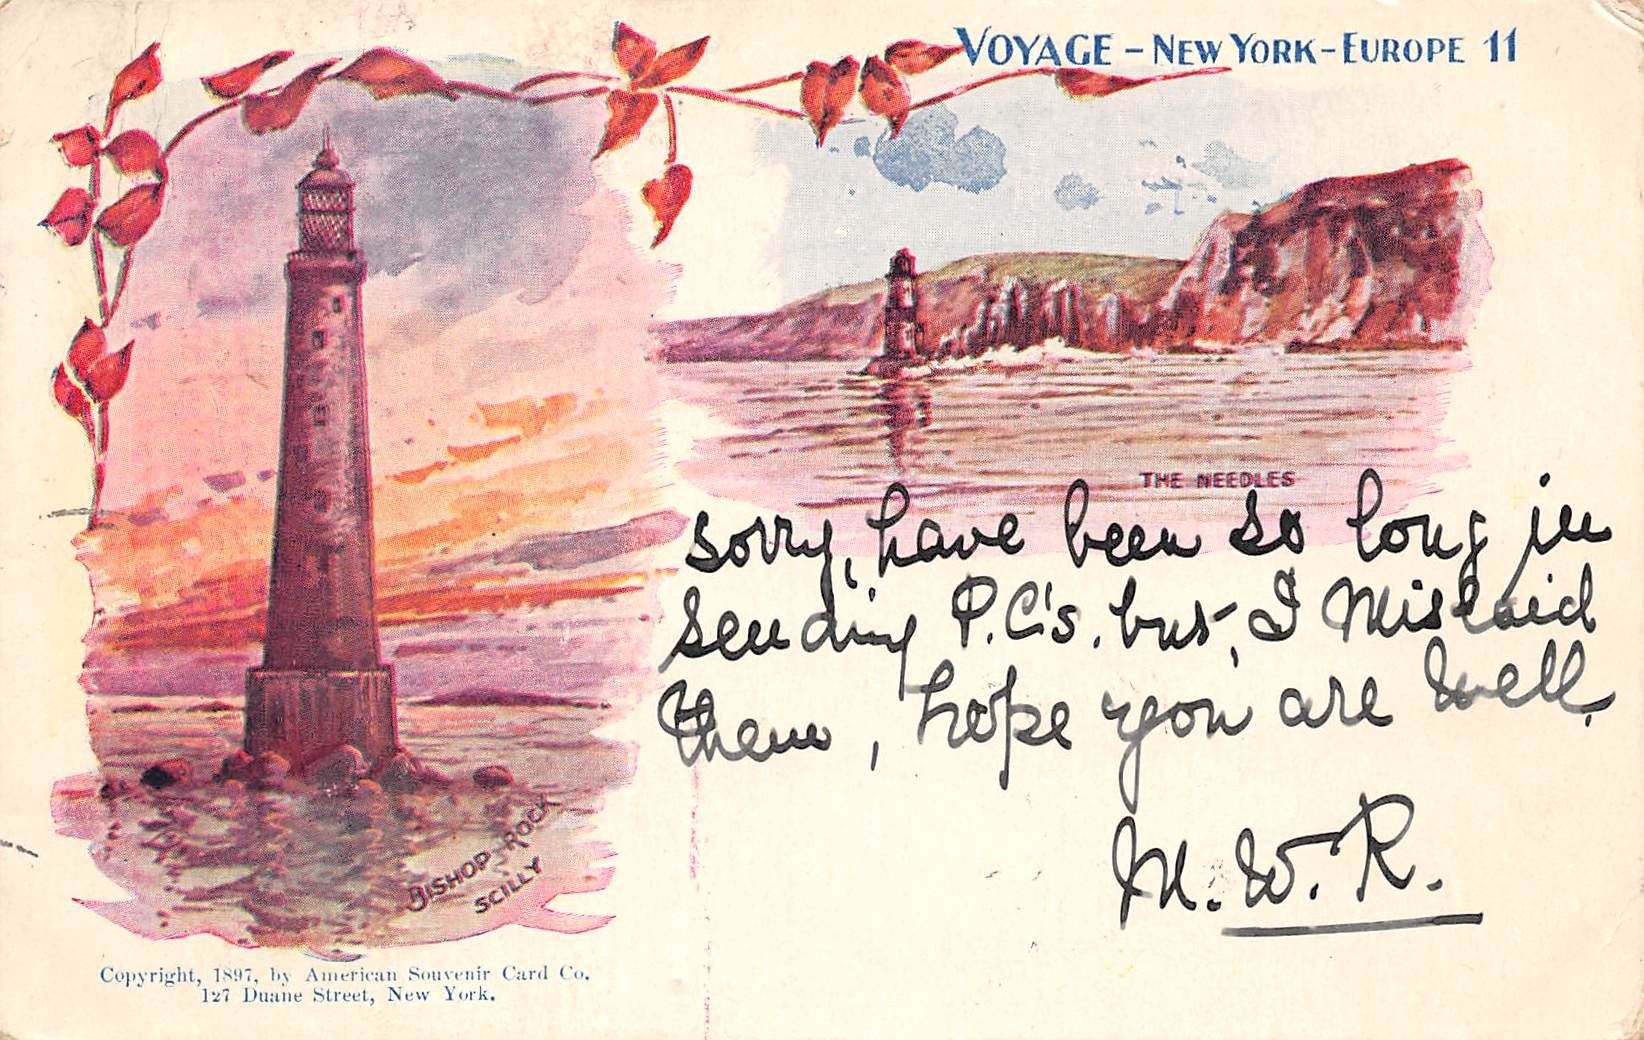 VOYAGE – NEW YORK – EUROPE 11
THE NEEDLES
sorry, have been so long in
sending P.C's. but, I mislaid
them, hope you are well.
M. W. R.
BISHOP ROCK
SCILLY
Copyright, 1897, by American Souvenir Card Co.
127 Duane Street, New York.